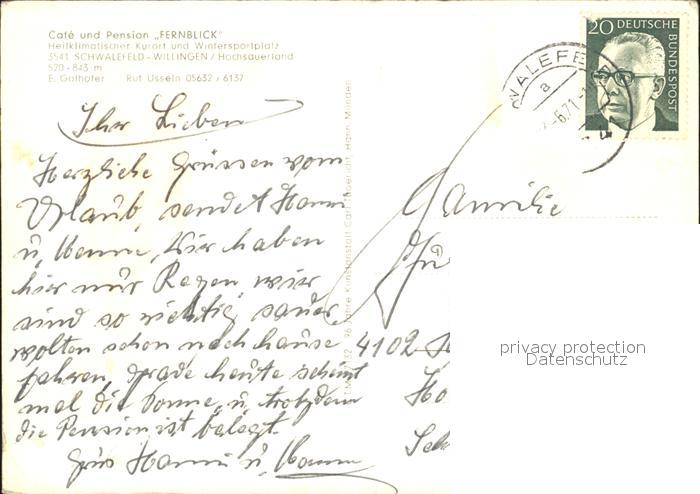 Café und Pension „FERNBLICK"
Heilklimatischer Kurort und Wintersportplatz
3541 SCHWALEFELD - WILLINGEN / Hochsauerland
520 - 843 m
E. Galhofer Ruf Usseln 05632 / 6137
20 DEUTSCHE
BUNDESPOST
WALEFE
a
-6.71-1
Ihr Lieben
Herzliche Grüssen vom
Urlaub, sendet Hanni
u, wir haben
hier nur Regen, wier
sind so richtig sauer
wolten schon nach hause
fahren, grade heute scheint
mal die Sonne, u, trotzdem
die Pension ist belegt.
Grus Hanni u,
Familie
4102
Ho
Sch
privacy protection
Datenschutz